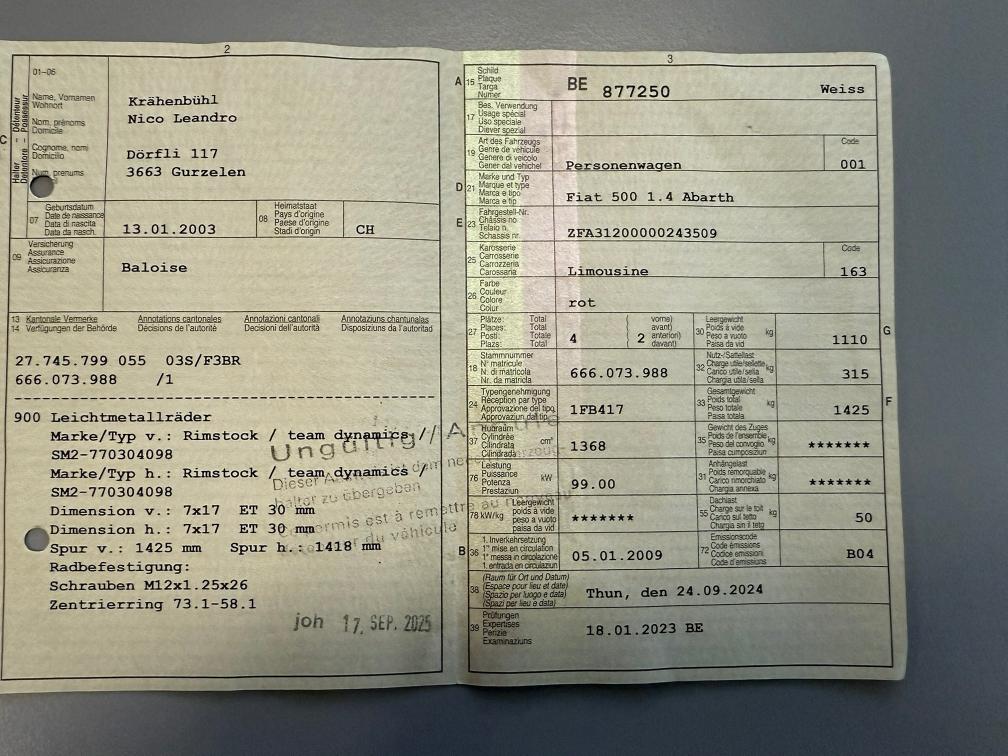 2
01–06
Halter – Détenteur
Detentore – Possessur
C
Name, Vornamen
Wohnort
Nom, prénoms
Domicile
Cognome, nomi
Domicilio
Num, prenums
Krähenbühl
Nico Leandro
Dörfli 117
3663 Gurzelen
07
Geburtsdatum
Date de naissance
Data di nascita
Data da nasch.
13.01.2003
08
Heimatstaat
Pays d'origine
Paese d'origine
Stadi d'origin
CH
09
Versicherung
Assurance
Assicurazione
Assicuranza
Baloise
13 Kantonale Vermerke Annotations cantonales Annotazioni cantonali Annotaziuns chantunalas
14 Verfügungen der Behörde Décisions de l'autorité Decisioni dell'autorità Disposiziuns da l'autoritad
27.745.799 055 03S/F3BR
666.073.988 /1
900 Leichtmetallräder
Marke/Typ v.: Rimstock / team dynamics //
SM2-770304098
Marke/Typ h.: Rimstock / team dynamics /
SM2-770304098
Dimension v.: 7x17 ET 30 mm
Dimension h.: 7x17 ET 30 mm
Spur v.: 1425 mm Spur h.: 1418 mm
Radbefestigung:
Schrauben M12x1.25x26
Zentrierring 73.1-58.1
Ungültig //
Dieser
halter zu übergeben
permis est à remettre au
du véhicule
joh 17. SEP. 2025
3
A
15
Schild
Plaque
Targa
Numer
BE 877250 Weiss
17
Bes. Verwendung
Usage spécial
Uso speciale
Diever spezial
19
Art des Fahrzeugs
Genre de véhicule
Genere di veicolo
Gener dal vehichel
Personenwagen
Code
001
D
21
Marke und Typ
Marque et type
Marca e tipo
Marca e tip
Fiat 500 1.4 Abarth
E
23
Fahrgestell-Nr.
Châssis no
Telaio n.
Schassis nr.
ZFA31200000243509
25
Karosserie
Carrosserie
Carrozzeria
Carossaria
Limousine
Code
163
26
Farbe
Couleur
Colore
Colur
rot
27
Plätze: Total
Places: Total
Posti: Totale
Plazs: Total
4
vorne)
avant)
anteriori)
davant)
2
30
Leergewicht
Poids à vide
Peso a vuoto
Paisa da vid
kg
1110
G
18
Stammnummer
N° matricule
N. di matricola
Nr. da matricla
666.073.988
32
Nutz-/Sattellast
Charge utile/sellette
Carico utile/sella
Chargia utila/sella
kg
315
24
Typengenehmigung
Réception par type
Approvazione del tipo
Approvaziun dal tip
1FB417
33
Gesamtgewicht
Poids total
Peso totale
Paisa totala
kg
1425
F
37
Hubraum
Cylindrée
Cilindrata
Cilindrada
cm³
1368
35
Gewicht des Zuges
Poids de l'ensemble
Peso del convoglio
Paisa cumposiziun
kg
*******
76
Leistung
Puissance
Potenza
Prestaziun
kW
99.00
31
Anhängelast
Poids remorquable
Carico rimorchiato
Chargia annexa
kg
*******
78 kW/kg
Leergewicht
poids à vide
peso a vuoto
paisa da vid
*******
55
Dachlast
Charge sur le toit
Carico sul tetto
Chargia sin il tetg
kg
50
B
36
1. Inverkehrsetzung
1re mise en circulation
1a messa in circolazione
1. entrada en circulaziun
05.01.2009
72
Emissionscode
Code émissions
Codice emissioni
Code d'emissiuns
B04
38
(Raum für Ort und Datum)
(Espace pour lieu et date)
(Spazio per luogo e data)
(Spazi per lieu e data)
Thun, den 24.09.2024
39
Prüfungen
Expertises
Perizie
Examinaziuns
18.01.2023 BE